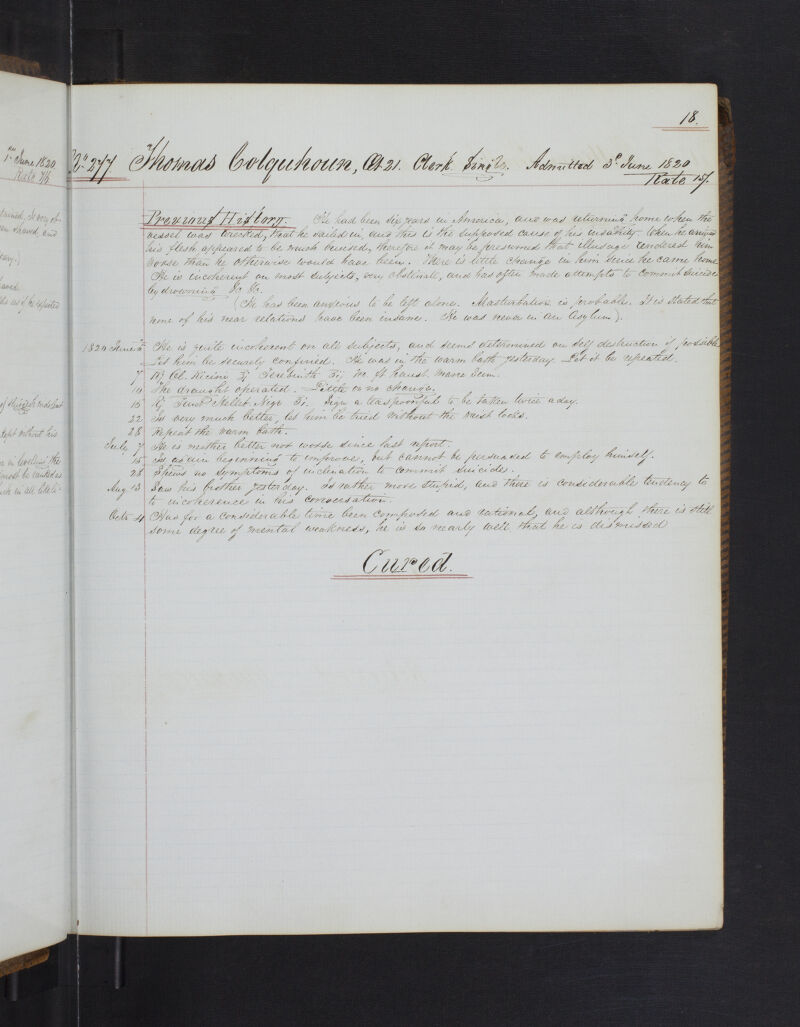 18.
June 1820
No 277 Thomas Colquhoun, Æt 21. Clerk. Single. Admitted 3d June 1820
Rate 15/.
Previous History. He had been six years in America, and was returning home when the
vessel was wrecked, that he sailed in, and this is the supposed cause of his insanity. When he arrived
his flesh appeared to be much bruised, therefore it may be presumed that illusage rendered him
worse than he otherwise would have been. There is little change in him since he came home.
He is incoherent on most subjects, very obstinate, and has often made attempts to commit suicide
by drowning &c &c.
(He has been anxious to be left alone. Masturbation is probable. It is stated that
none of his near relations have been insane. He was never in an Asylum).
1820 June He is quite incoherent on all subjects, and seems determined on self destruction if possible
Let him be securely confined. He was in the warm bath yesterday. Let it be repeated.
7 Ol. Ricini Terebinth M. ft Haust. mane sum.
10 The draught operated. Little or no change.
15 Helleb Nigr Sign a teaspoonful to be taken twice a day.
22 Is very much better, let him be tried without the wrist locks.
28 Repeat the warm bath.
July 7 He is neither better nor worse since last report.
15 Is again beginning to improve, but cannot be persuaded to employ himself.
28 Shews no symptoms of inclination to commit suicide.
Aug 13 Saw his brother yesterday. Is rather more stupid, and there is considerable tendency to
to incoherence in his conversation.
Octr 4 Has for a considerable time been composed and rational, and although there is still
some degree of mental weakness, he is so nearly well that he is dismissed
Cured.